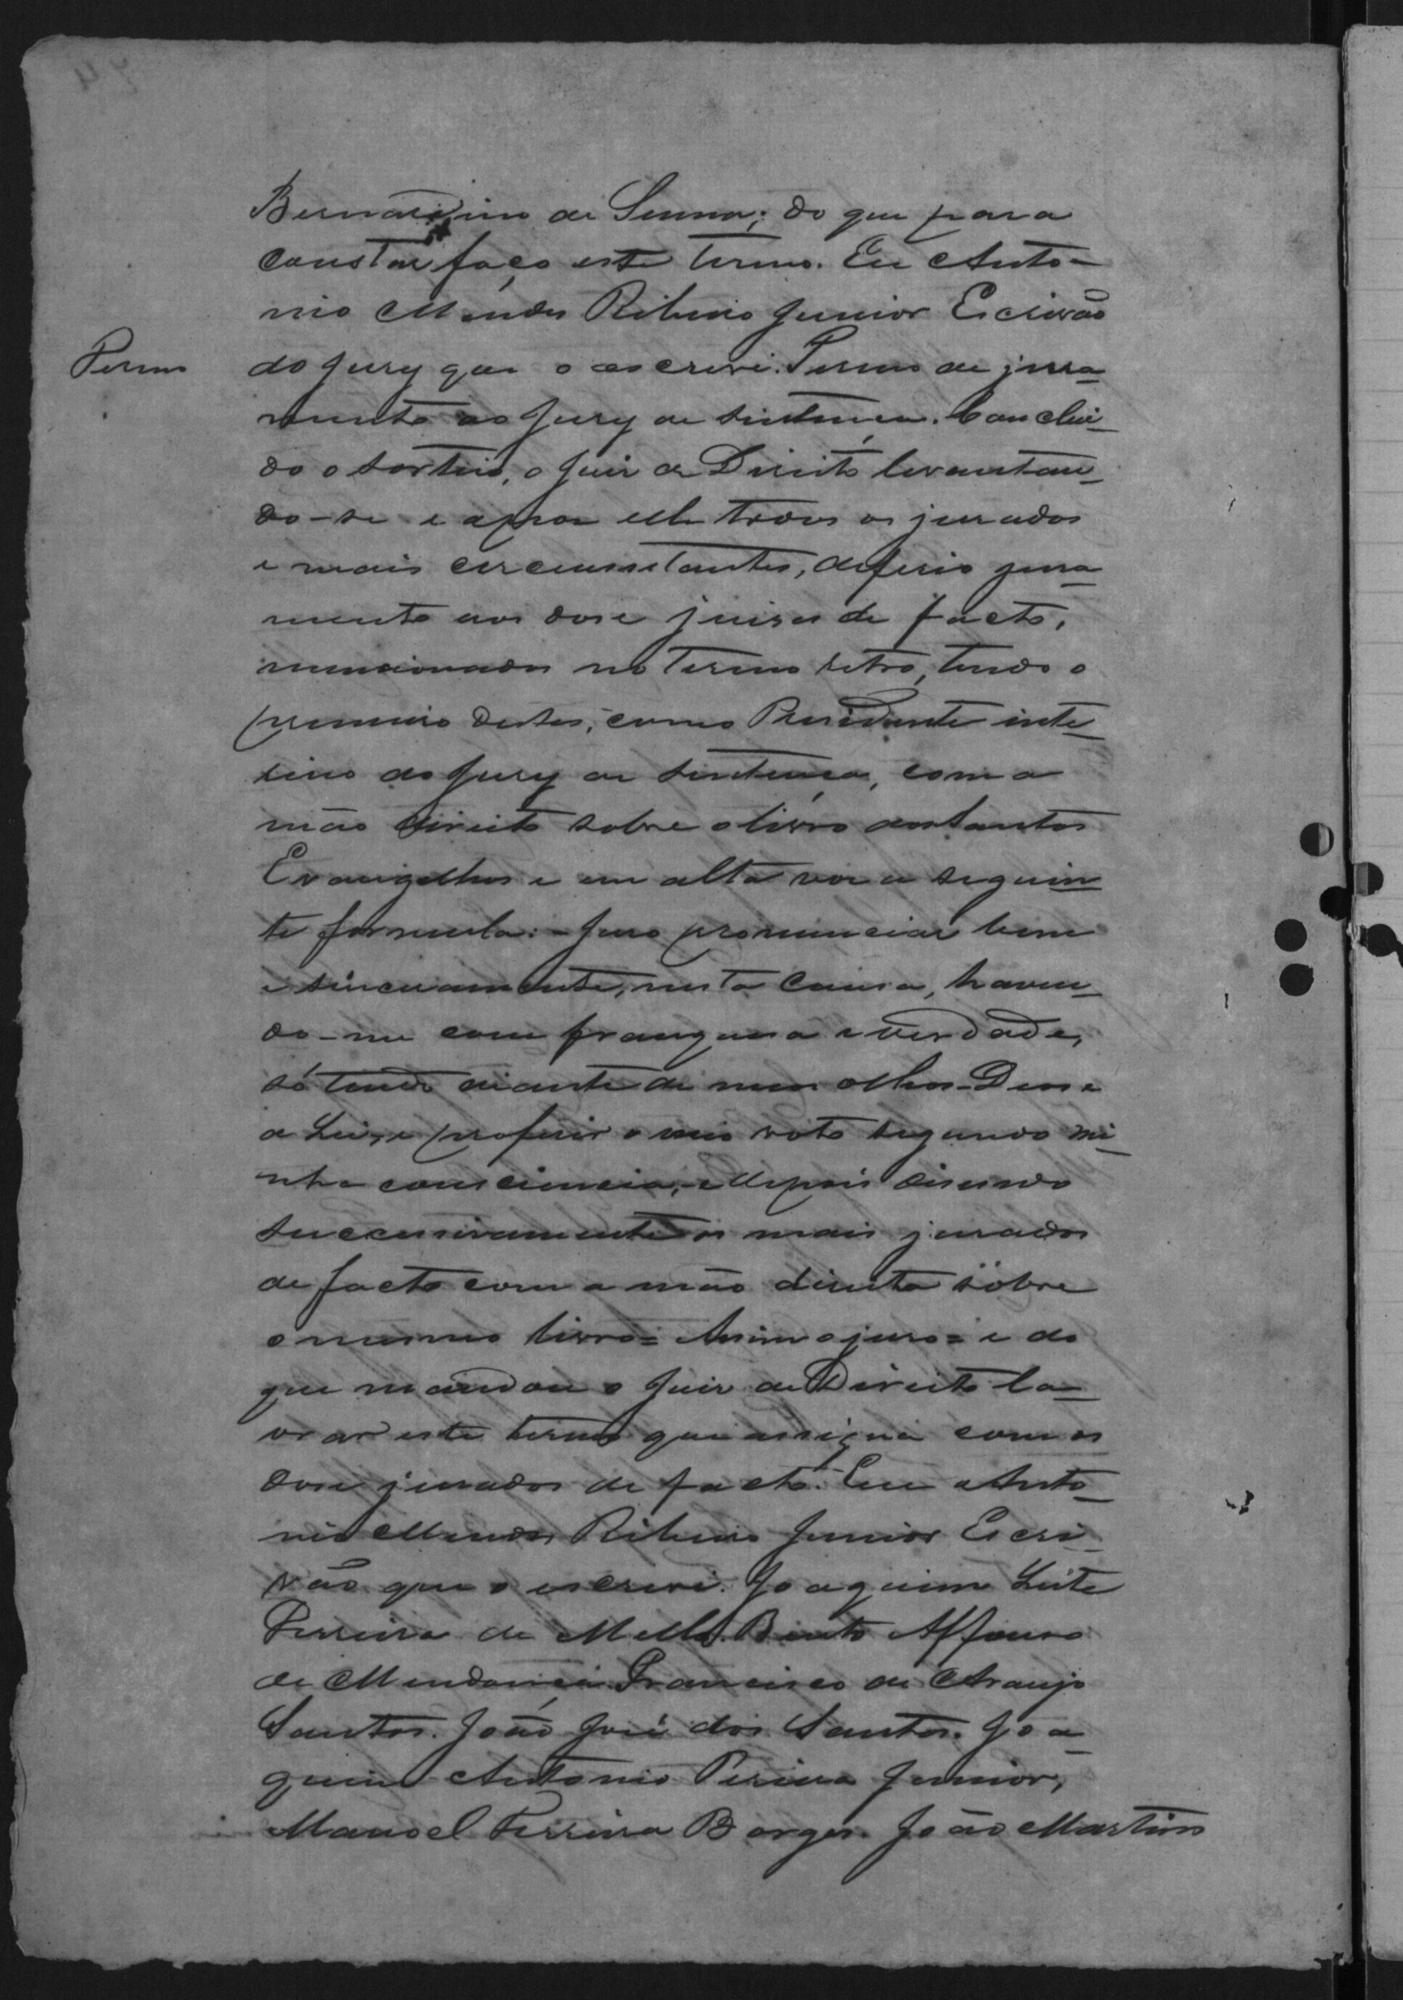 Bernardino de Senna; do que para
constar faço este termo. Eu Anto-
nio Mendes Ribeiro Junior Escrivão
Termo
do Jury que o escrevi. Termo de jura-
mento ao Jury de sentença. Conclui-
do o sorteio, o Juiz de Direito levantan-
do-se e apoz elle todos os jurados
e mais circumstantes, deferio jura-
mento aos dose juises de facto,
mencionados no termo retro, tendo o
primeiro destes, como Presidente inte-
rino do Jury de sentença, com a
mão direita sobre o livro dos Santos
Evangelhos e em alta voz a seguin-
te formula: - Juro pronunciar bem
e sinceramente, nesta causa, haven-
do-me com franquesa e verdade,
só tendo diante de meus olhos Deos e
a Lei, e proferir o meu voto segundo mi-
nha consciencia, e depois disendo
successivamente os mais jurados
de facto com a mão direita sobre
o mesmo livro = Assim o juro = e do
que mandou o Juiz de Direito la-
vrar este termo que assigna com os
dose jurados de facto. Eu Anto-
nio Mendes Ribeiro Junior Escri-
vão que o escrevi. Joaquim Leite
Ferreira de Mello. Bento Affonso
de Mendonça. Francisco de Araujo
Santos. João José dos Santos. Joa-
quim Antonio Pereira Junior,
Manoel Ferreira Borges. João Martins